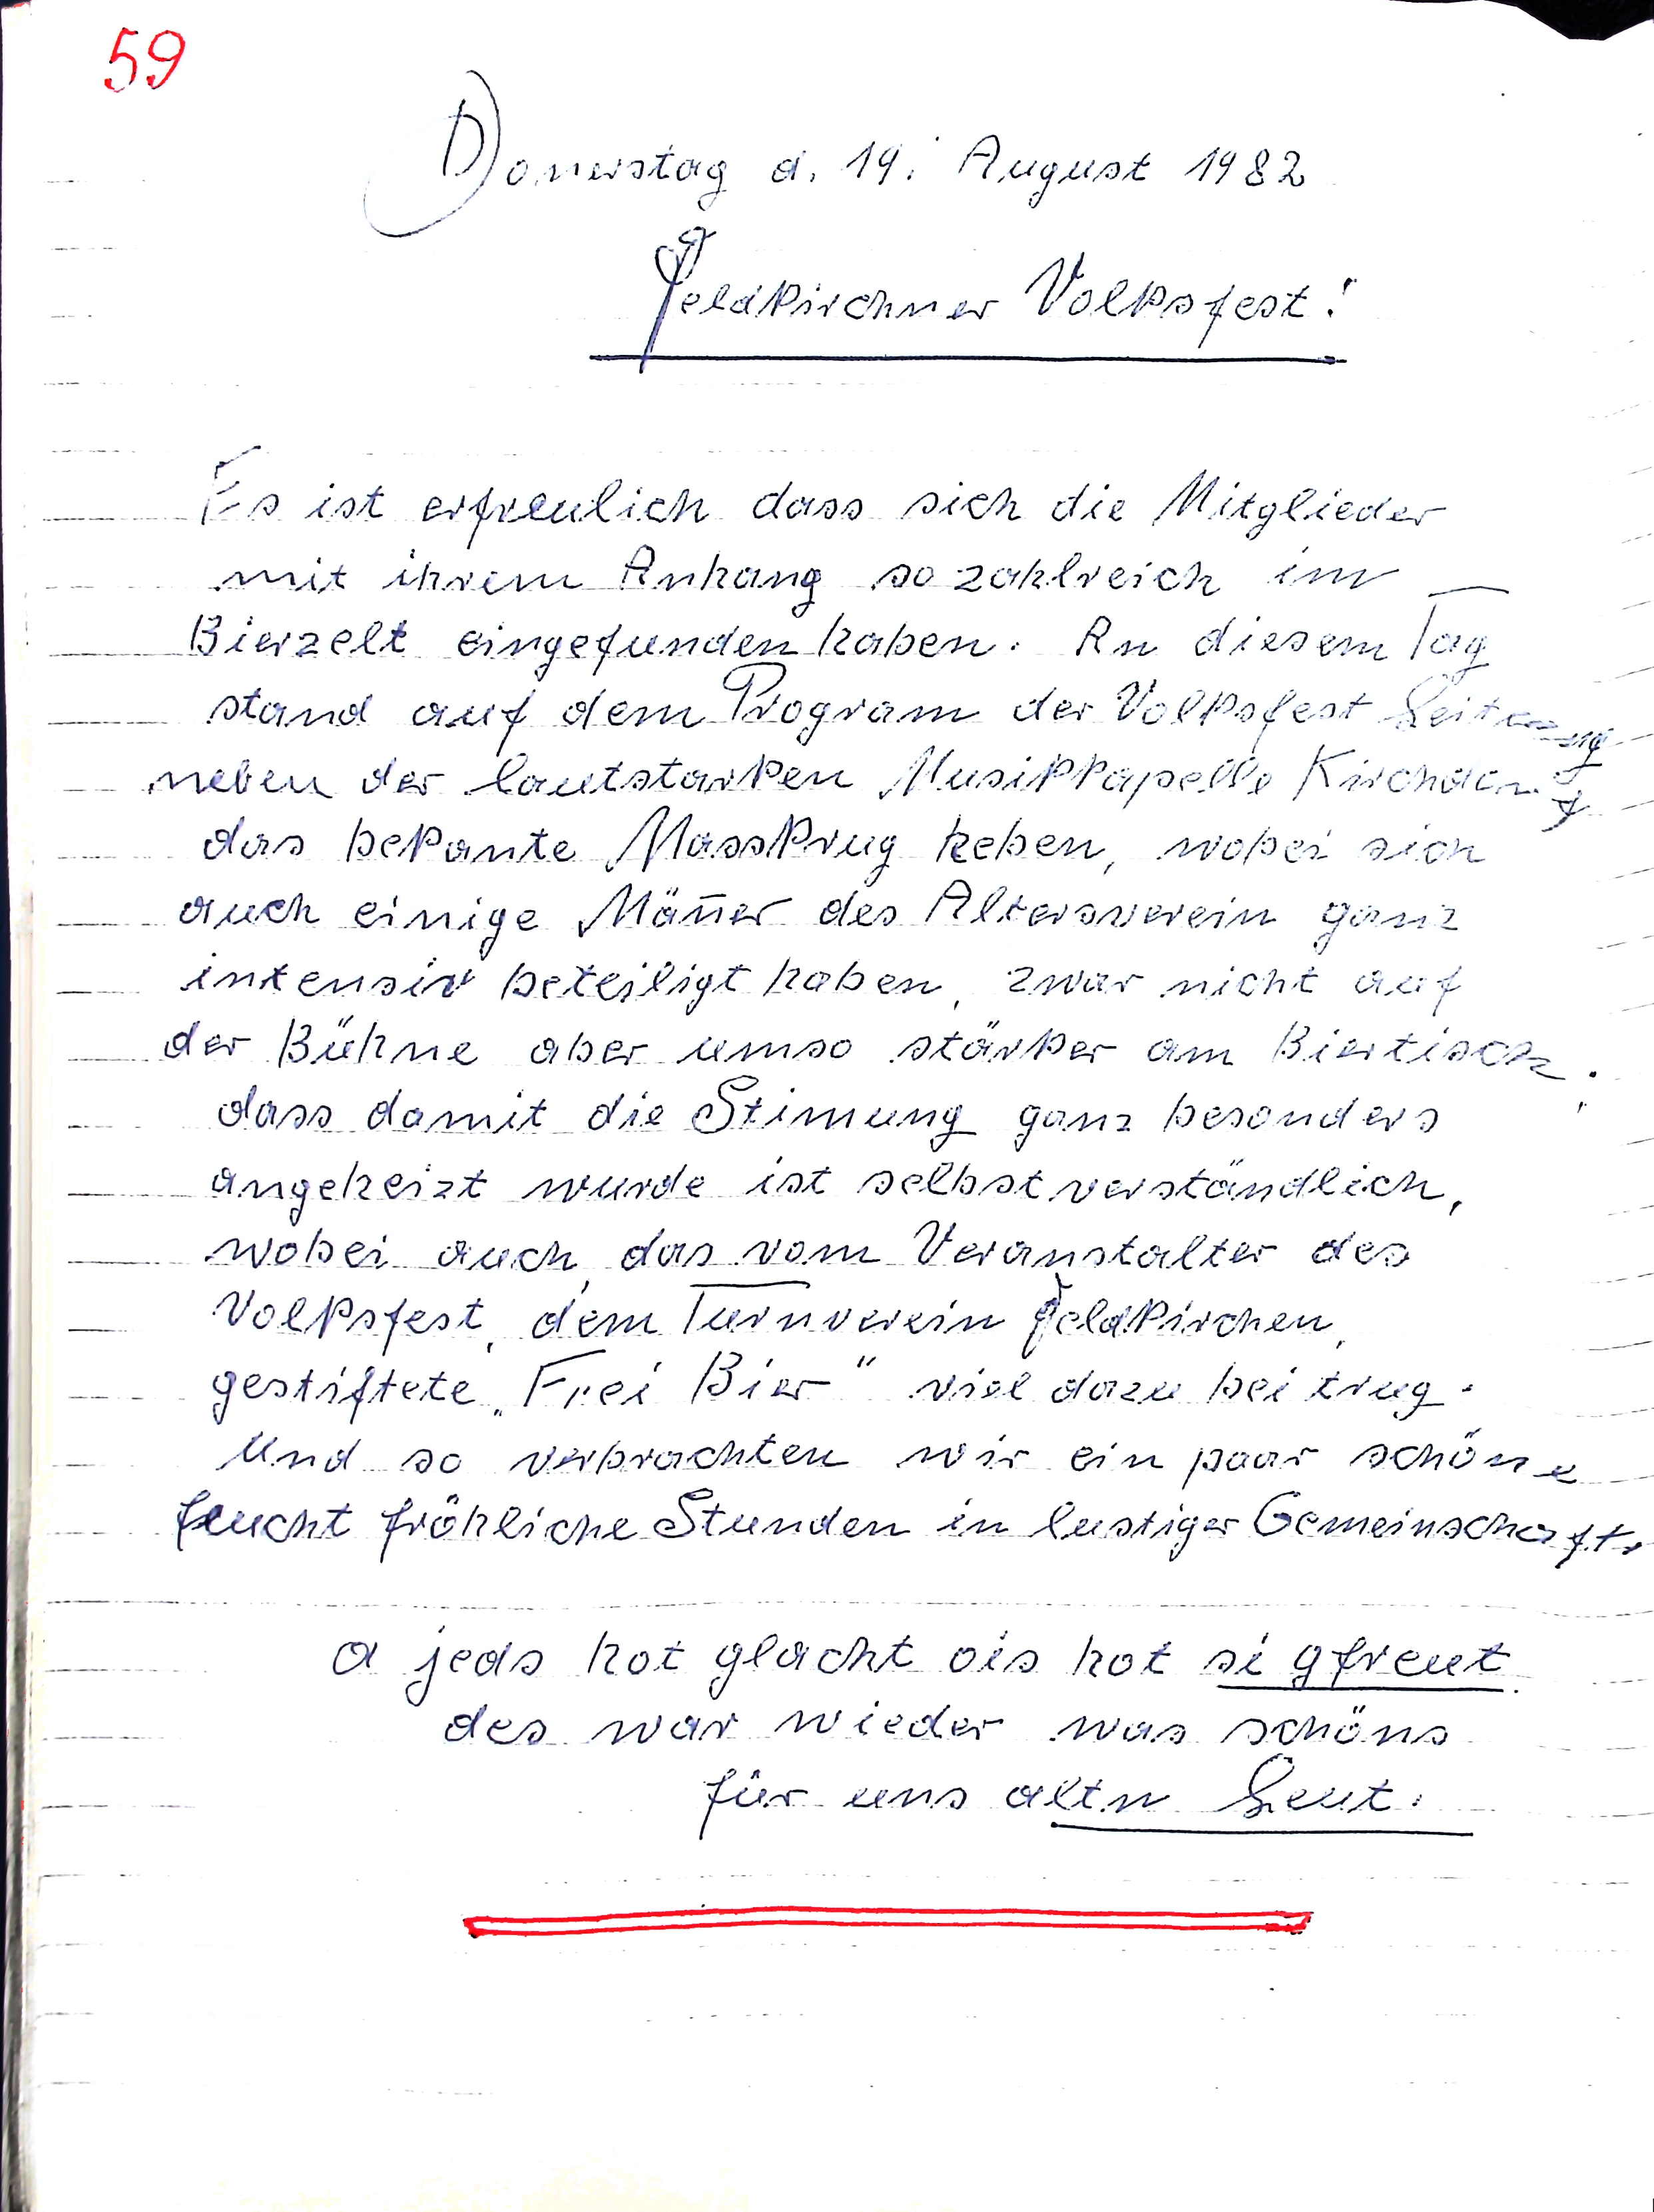 59
Donerstag d. 19. August 1982
Feldkirchner Volksfest!
Es ist erfreulich dass sich die Mitglieder
mit ihrem Anhang so zahlreich im
Bierzelt eingefunden haben. An diesem Tag
stand auf dem Program der Volksfest Leitung
neben der lautstarken Musikkapelle Kirchdorf
das bekante Masskrug heben, wobei sich
auch einige Mañer des Altersverein ganz
intensiv beteiligt haben, zwar nicht auf
der Bühne aber umso stärker am Biertisch.
dass damit die Stimung ganz besonders
angeheizt wurde ist selbstverständlich,
wobei auch, das vom Veranstalter des
Volksfest, dem Turnverein Feldkirchen,
gestiftete „Frei Bier" viel dazu bei trug.
Und so verbrachten wir ein paar schöne
feucht fröhliche Stunden in lustiger Gemeinschaft.
a jeds hot glacht ois hot si gfreut
des war wieder was schöns
für uns altn Leut.